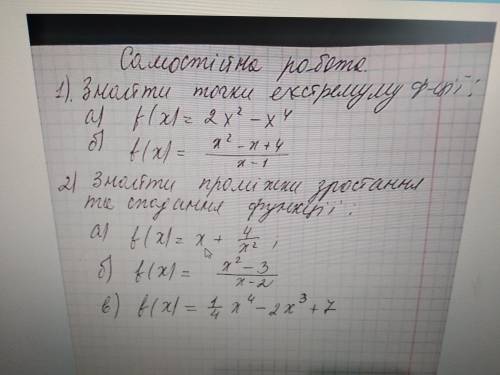 Самостійна робота.
1). Знайти точки екстремуму ф-ції:
а) f(x) = 2x² - x⁴
б) f(x) = (x² - x + 4)/(x - 1)
2) Знайти проміжки зростання
та спадання функції:
а) f(x) = x + 4/x²,
б) f(x) = (x² - 3)/(x - 2)
в) f(x) = 1/4 x⁴ - 2x³ + 7